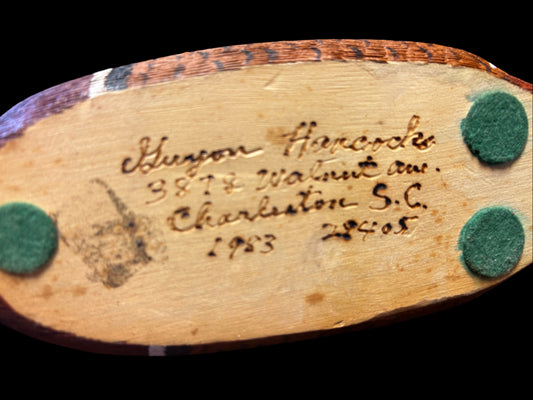 Guyon Hancock
3878 Walnut ave.
Charleston S.C.
1983 29405